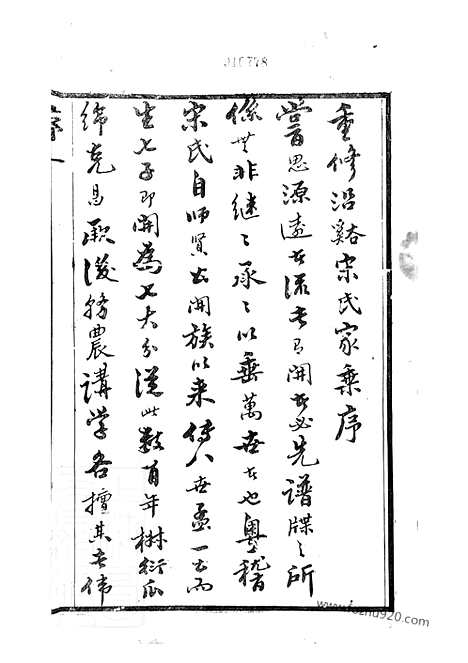 010778
重修沿谿宋氏家乘序
嘗思源遠者流長有開者必先譜牒之所
係世非繼繼承承以垂萬世者也粵稽
宋氏自師賢公開族以来傳八世孟一公而
生七子即開為七大分從此数百年樹衍瓜
綿克昌厥後務農講學各擅其長偉
www.fozhu920.com